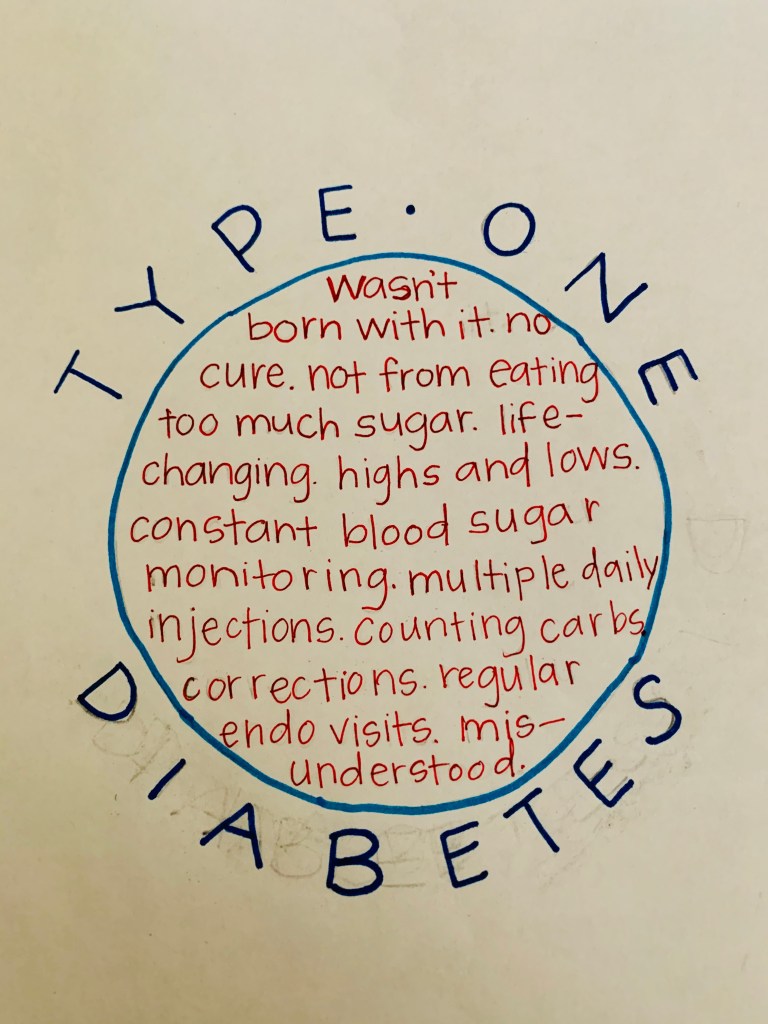 TYPE · ONE
Wasn't
born with it. no
cure. not from eating
too much sugar. life-
changing. highs and lows.
constant blood sugar
monitoring. multiple daily
injections. counting carbs.
corrections. regular
endo visits. mis-
understood.
DIABETES